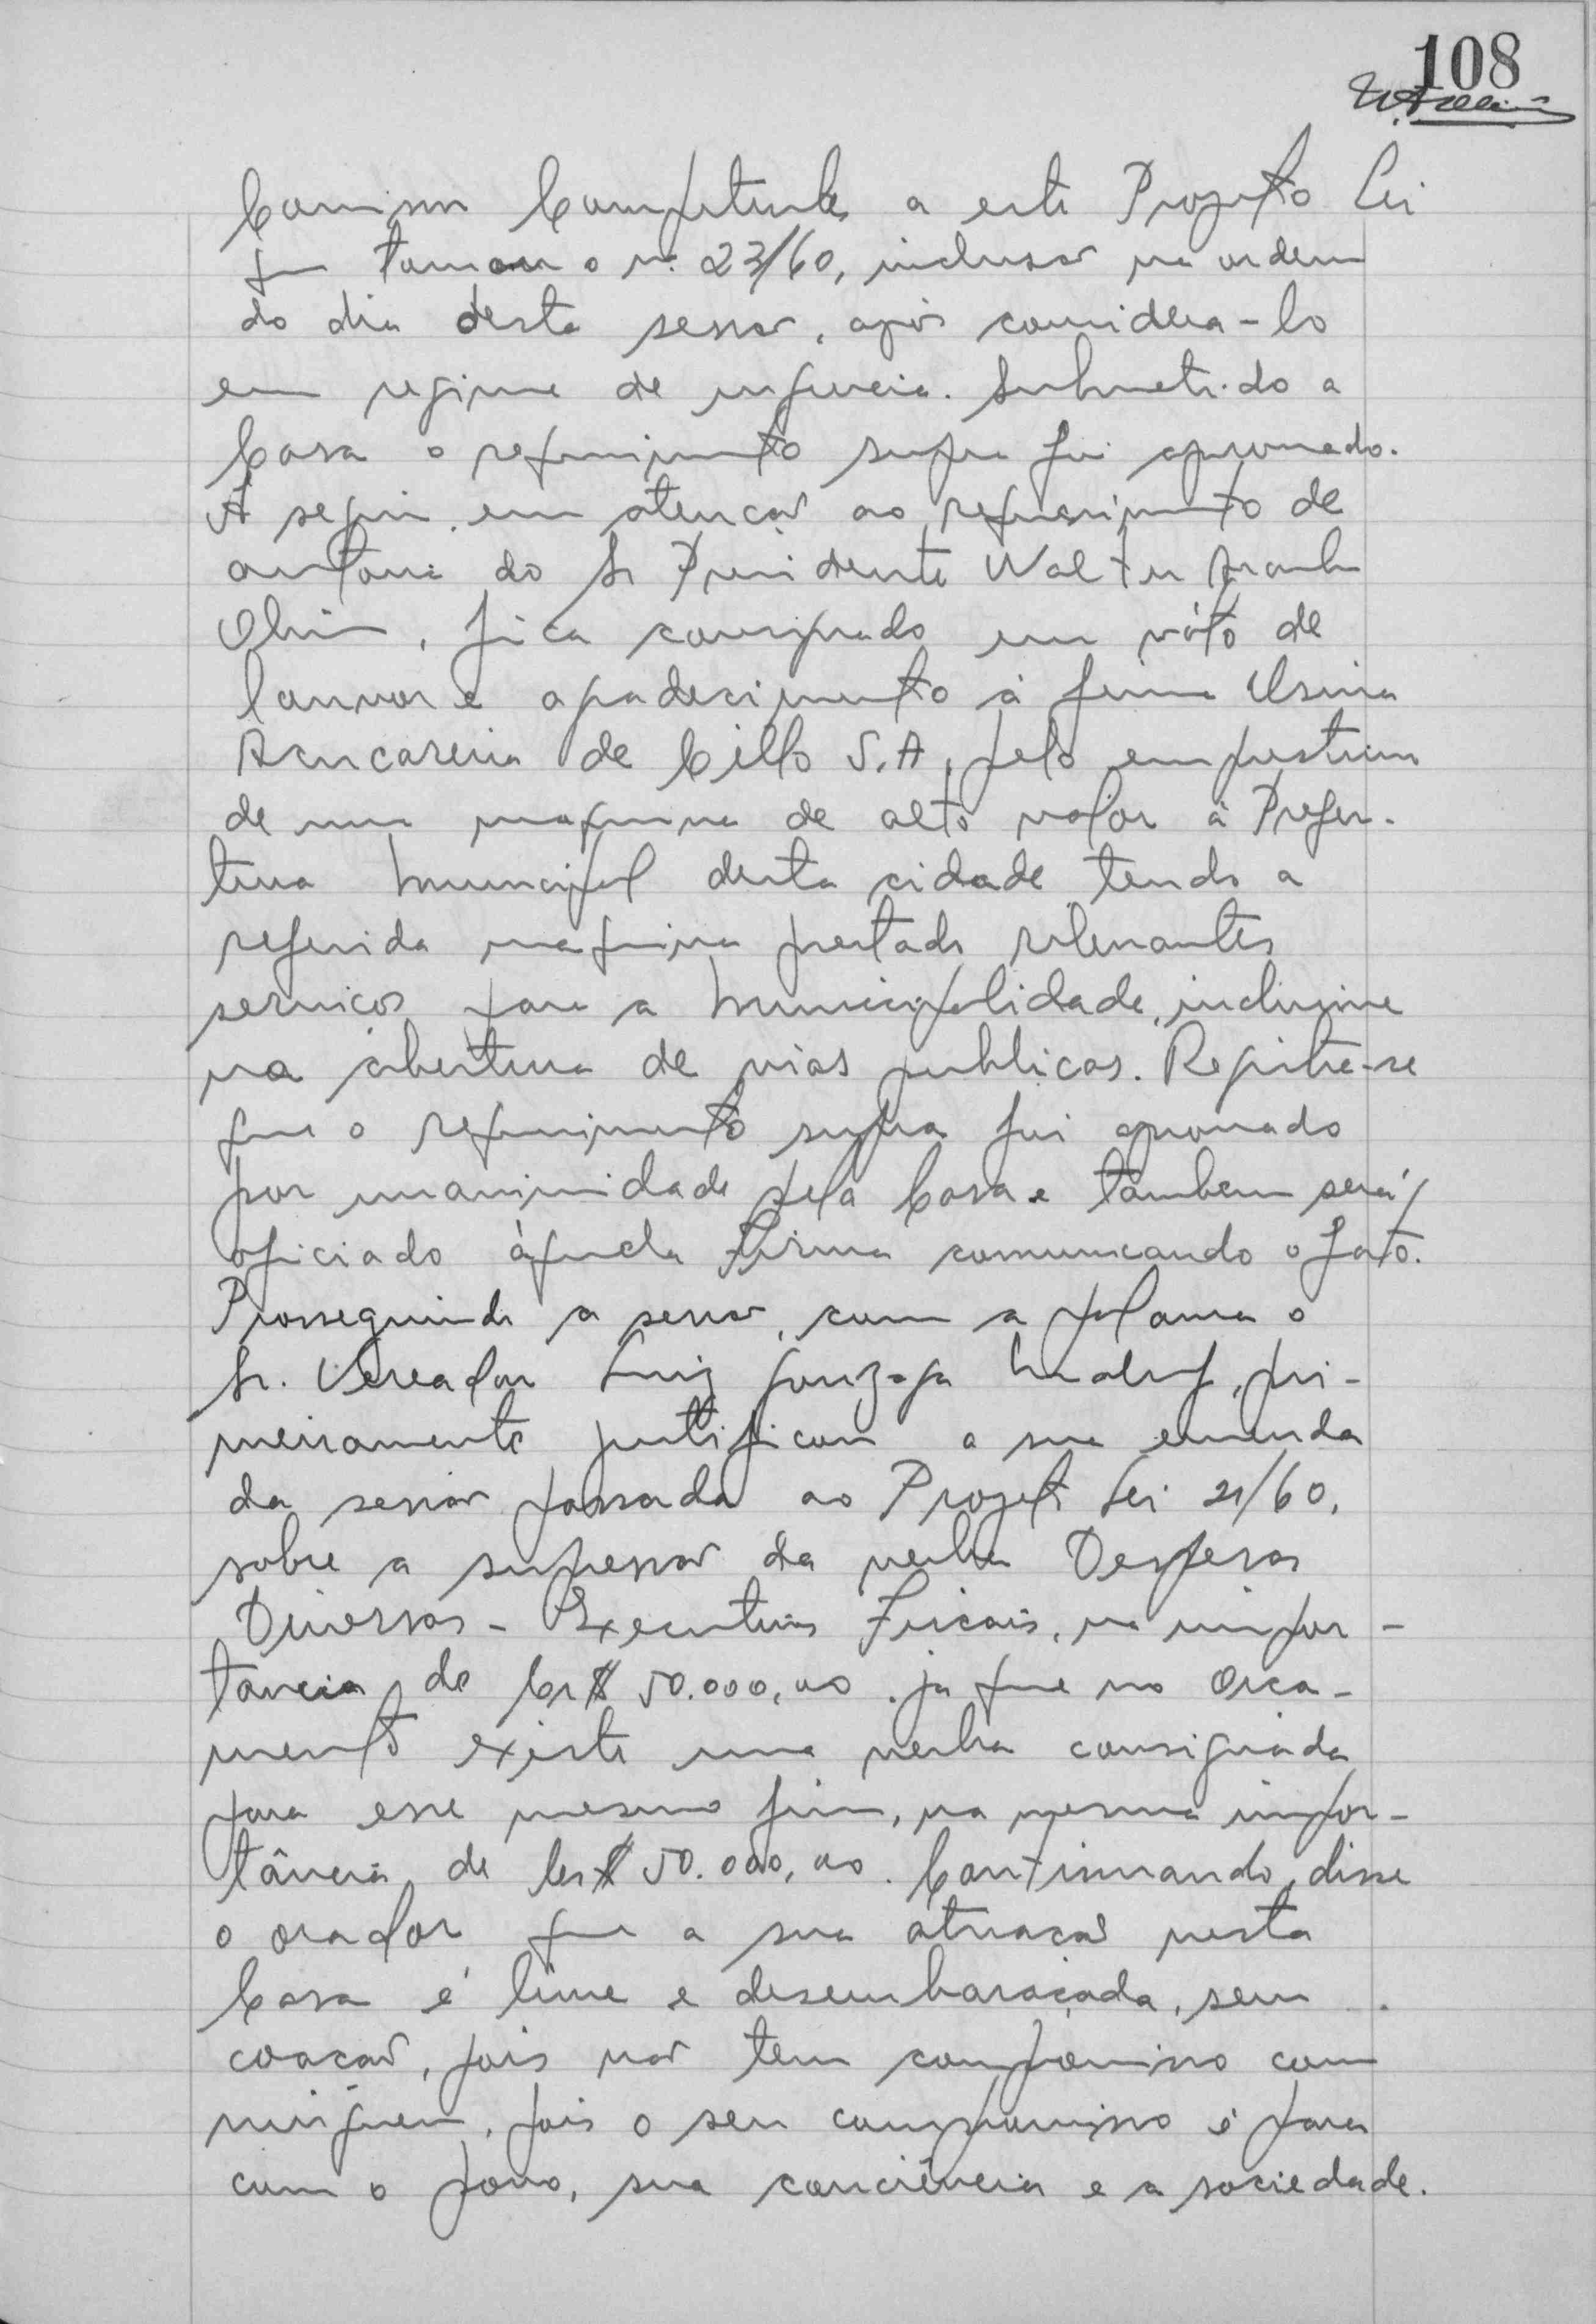 108
Comissão Competentes a este Projeto Lei
que tomou o n. 23/60, inclusão na ordem
do dia desta sessão, após considera-lo
em regime de urgencia. Submetido a
Casa o requerimento supra foi aprovado.
A seguir, em atenção ao requerimento de
autoria do Sr Presidente Walter
fica consignado um vóto de
louvor e agradecimento á firma Usina
Açucareira de Cillo S.A, pelo emprestimo
de uma maquina de alto valor á Prefei-
tura Municipal desta cidade tendo a
referida maquina prestado relevantes
serviços para a Municipalidade, inclusive
na abertura de vias publicas. Registre-se
que o requerimento supra foi aprovado
por unanimidade pela Casa e tambem será
oficiado àquela Firma comunicando o fato.
Prosseguindo a sessão, com a palavra o
Sr. Vereador Luiz Gonzaga pri-
meiramente justificou a sua emenda
da sessão passada ao Projeto Lei 21/60,
sobre a supressão da verba Despesas
Diversas - Executivos Fiscais, na impor-
tancia de Cr$ 50.000,00. ja que no Orça-
mento existe uma verba consignada
para esse mesmo fim, na mesma impor-
tância de Cr$ 50.000,00. Continuando, disse
o orador que a sua atuação nesta
Casa é livre e desembaraçada, sem
coação, pois não tem compromisso com
ninguem, pois o seu compromisso é para
com o povo, sua conciência e a sociedade.